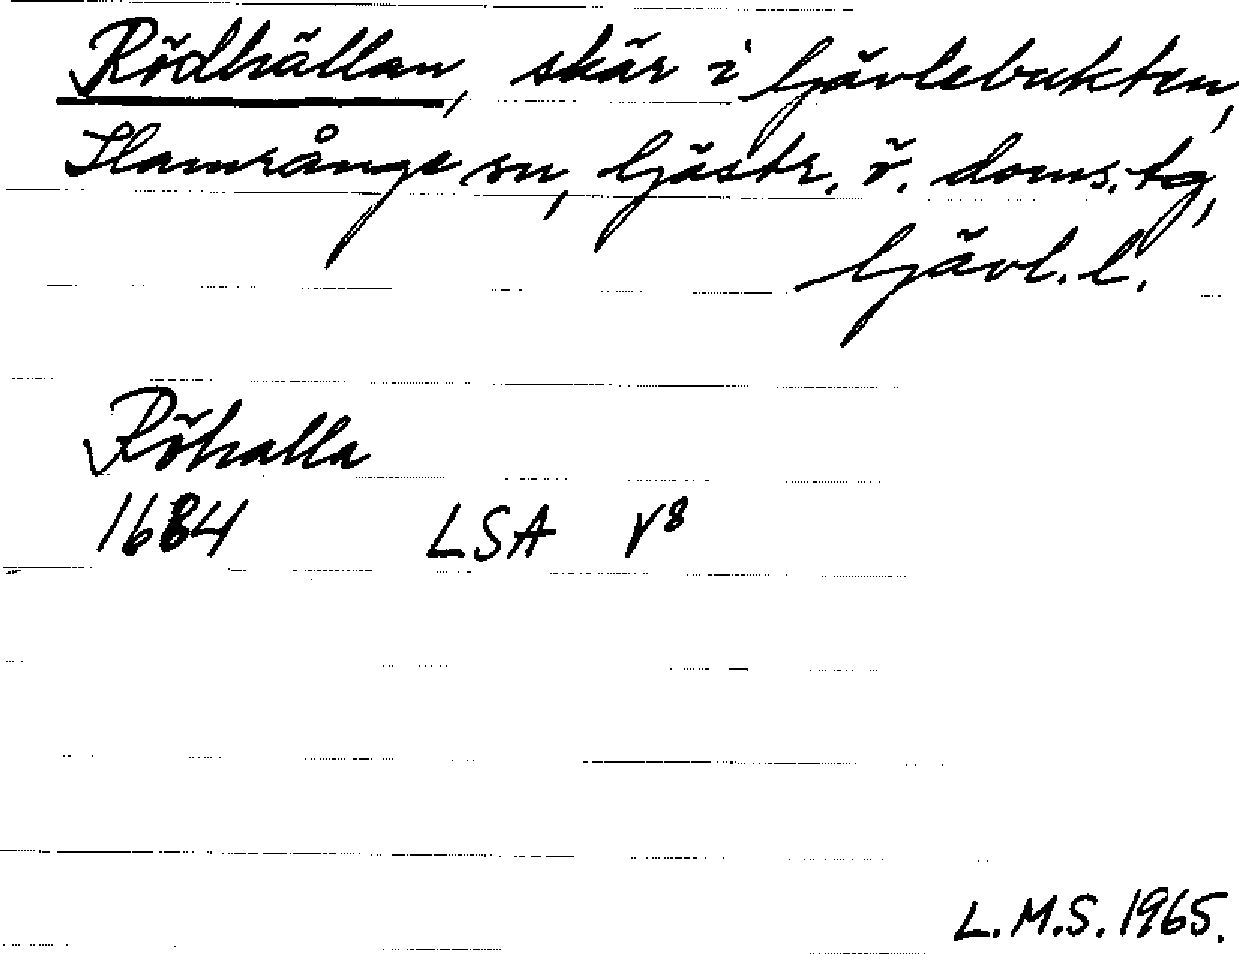 Rödhällan, skär i Gävlebukten,
Hamrånge sn, Gästr. ö. doms.tg,
Gävl. l.
Röhalla
1684 LSA V⁸
L.M.S. 1965.